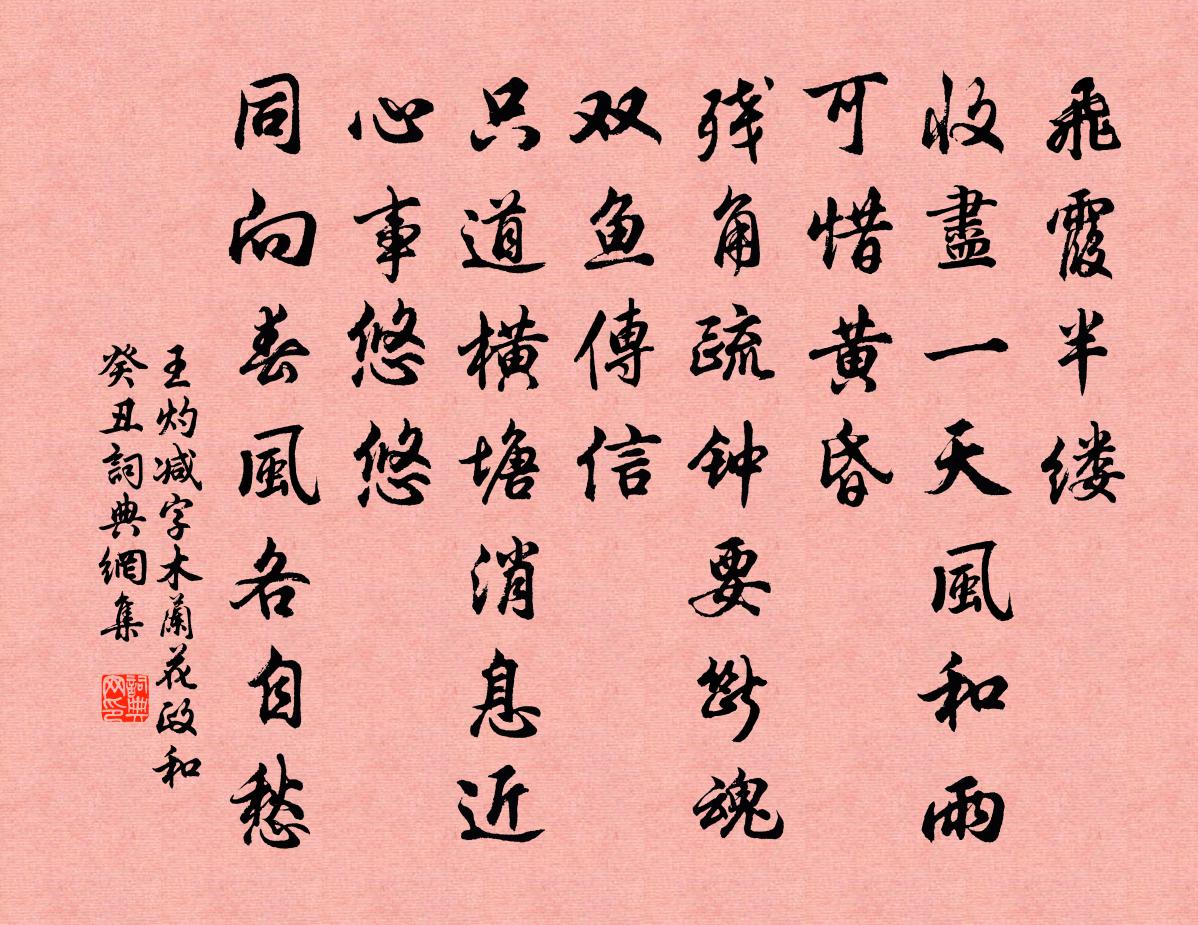 飛霞半缕
收盡一天風和雨
可惜黄昏
残角疏钟要斷魂
双鱼傳信
只道横塘消息近
心事悠悠
同向春風各自愁
王灼减字木蘭花政和
癸丑詞典網集
詞典网印